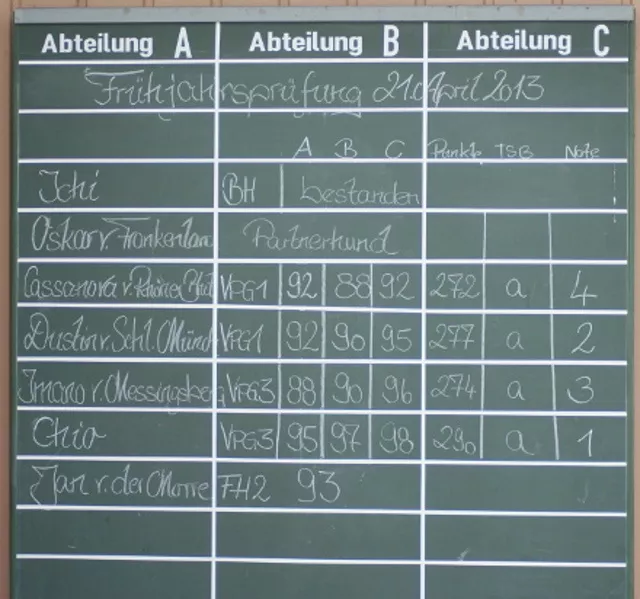 Abteilung A Abteilung B Abteilung C
Frühjahrsprüfung 21. April 2013
A B C Punkte TSB Note
Ichi BH bestanden
Oskar v. Frankenland Partnerhund
Cassanova v. VPG1 92 88 92 272 a 4
Dustin v. Schl. Münch VPG1 92 90 95 277 a 2
Imaro v. Messingsberg VPG3 88 90 96 274 a 3
Chio VPG3 95 97 98 290 a 1
Jan v. der FH2 93